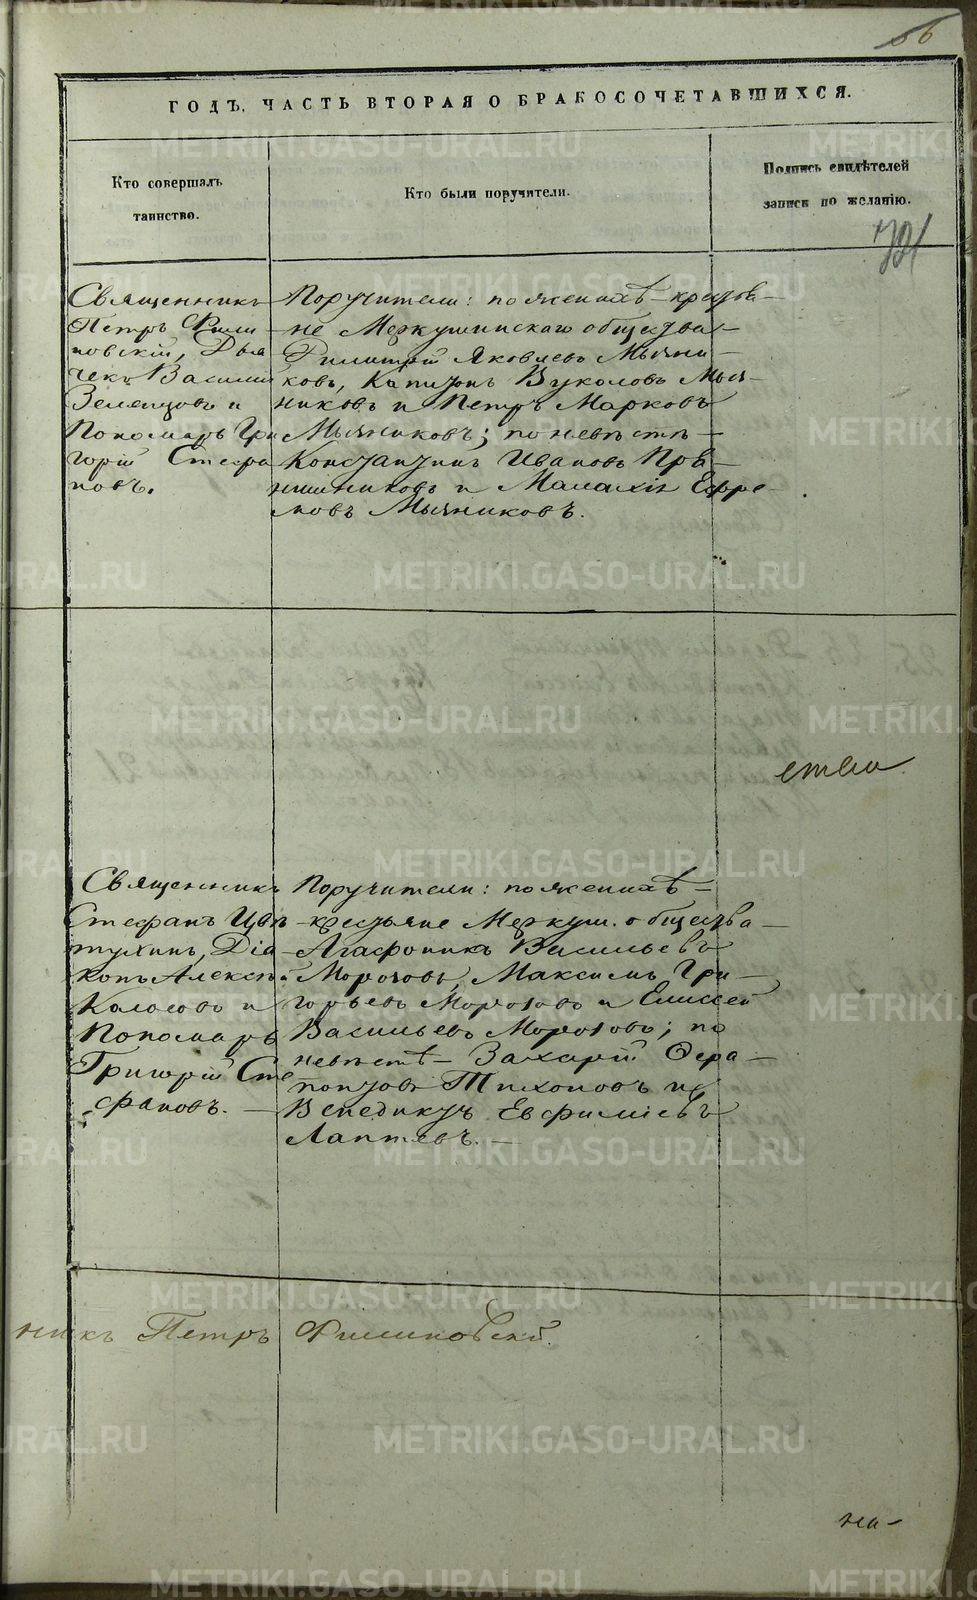 66
ГОДЪ. ЧАСТЬ ВТОРАЯ О БРАКОСОЧЕТАВШИХСЯ.
Кто совершалъ
таинство.
Кто были поручители.
Подпись свидѣтелей
записи по желанію.
721
Священникъ
Петръ Фили
повскій, Дья
чекъ Василій
Зеленцовъ и
Пономарь Гри
горій Стефа
новъ.
Поручители: по женихѣ – крестья –
не Меркушинскаго общества –
Димитрій Яковлевъ Мычни –
ковъ, Капитонъ Вуколовъ Мыч –
никовъ и Петръ Марковъ
Мычниковъ; по невѣстѣ –
Константинъ Ивановъ Пря –
нишниковъ и Малахія Ефре –
мовъ Мычниковъ.
ства
Священникъ
Стефанъ Цвѣ
тухинъ, Діа –
конъ Алексѣй
Колосовъ и
Пономарь
Григорій Сте
фановъ. –
Поручители: по женихѣ –
крестьяне Меркуш. общества –
Агафоникъ Васильевъ
Морозовъ, Максимъ Гри –
горьевъ Морозовъ и Елисей
Васильевъ Морозовъ; по
невѣстѣ – Захарій Фера –
понтовъ Тихоновъ и
Венедиктъ Евфиміевъ
Лаптевъ. –
никъ Петръ Филиповскій.
на –
METRIKI.GASO-URAL.RU